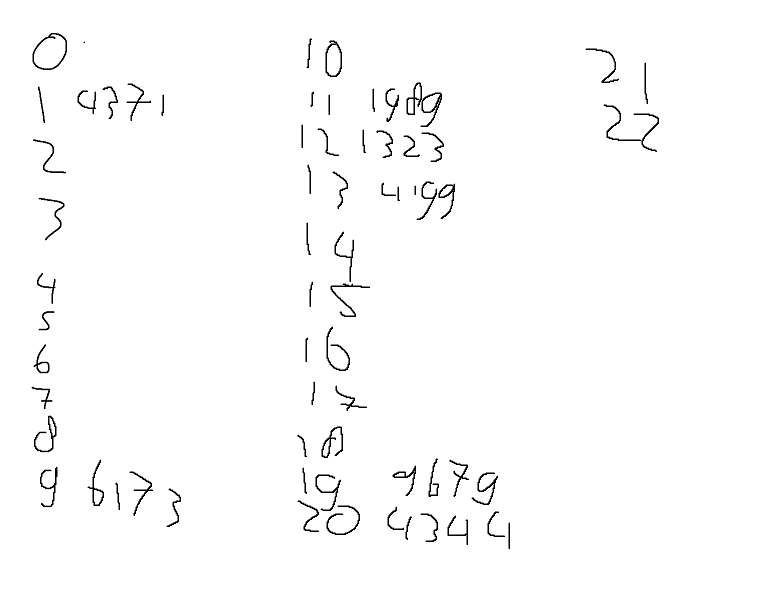 0
1 4371
2
3
4
5
6
7
8
9 6173
10
11 1989
12 1323
13 4199
14
15
16
17
18
19 9679
20 4344
21
22